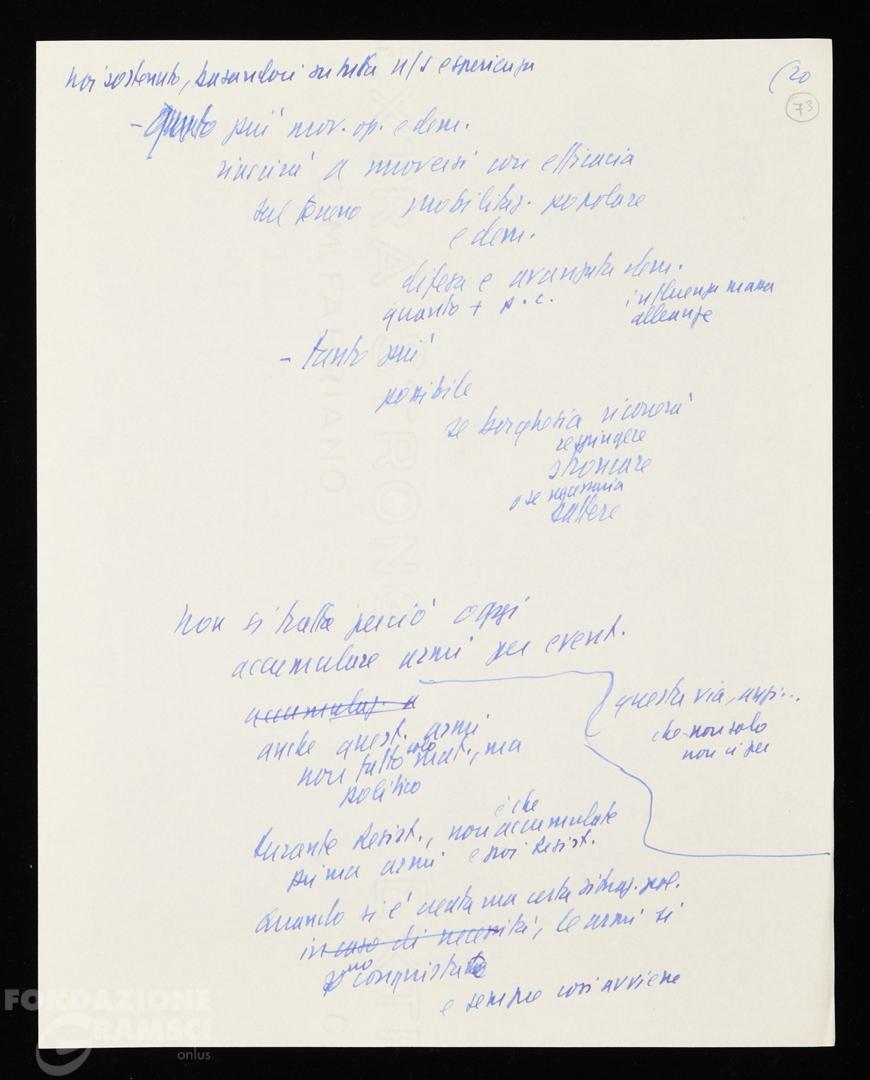 noi sostenuto, basandoci su tutta n/s esperienza
(20
73
- Quanto più mov. op. e dem.
riuscirà a muoversi con efficacia
sul terreno mobilitaz. popolare
e dem.
difesa e avanzata dem.
quanto + p.c. influenza massa
alleanze
- tanto più
possibile
se borghesia ricorrerà
respingere
stroncare
o se necessario
battere
non si tratta perciò oggi
accumulare armi per event.
accumulaz. a
anche quest. armi
non fatto solo mat., ma
politico
questa via, anzi...
che non solo
non ci per
durante Resist., non è che accumulate
prima armi e poi Resist.
Quando si è creata una certa situaz. pol.
in caso di necessità, le armi si
sono conquistate
e sempre così avviene
FONDAZIONE
GRAMSCI
onlus